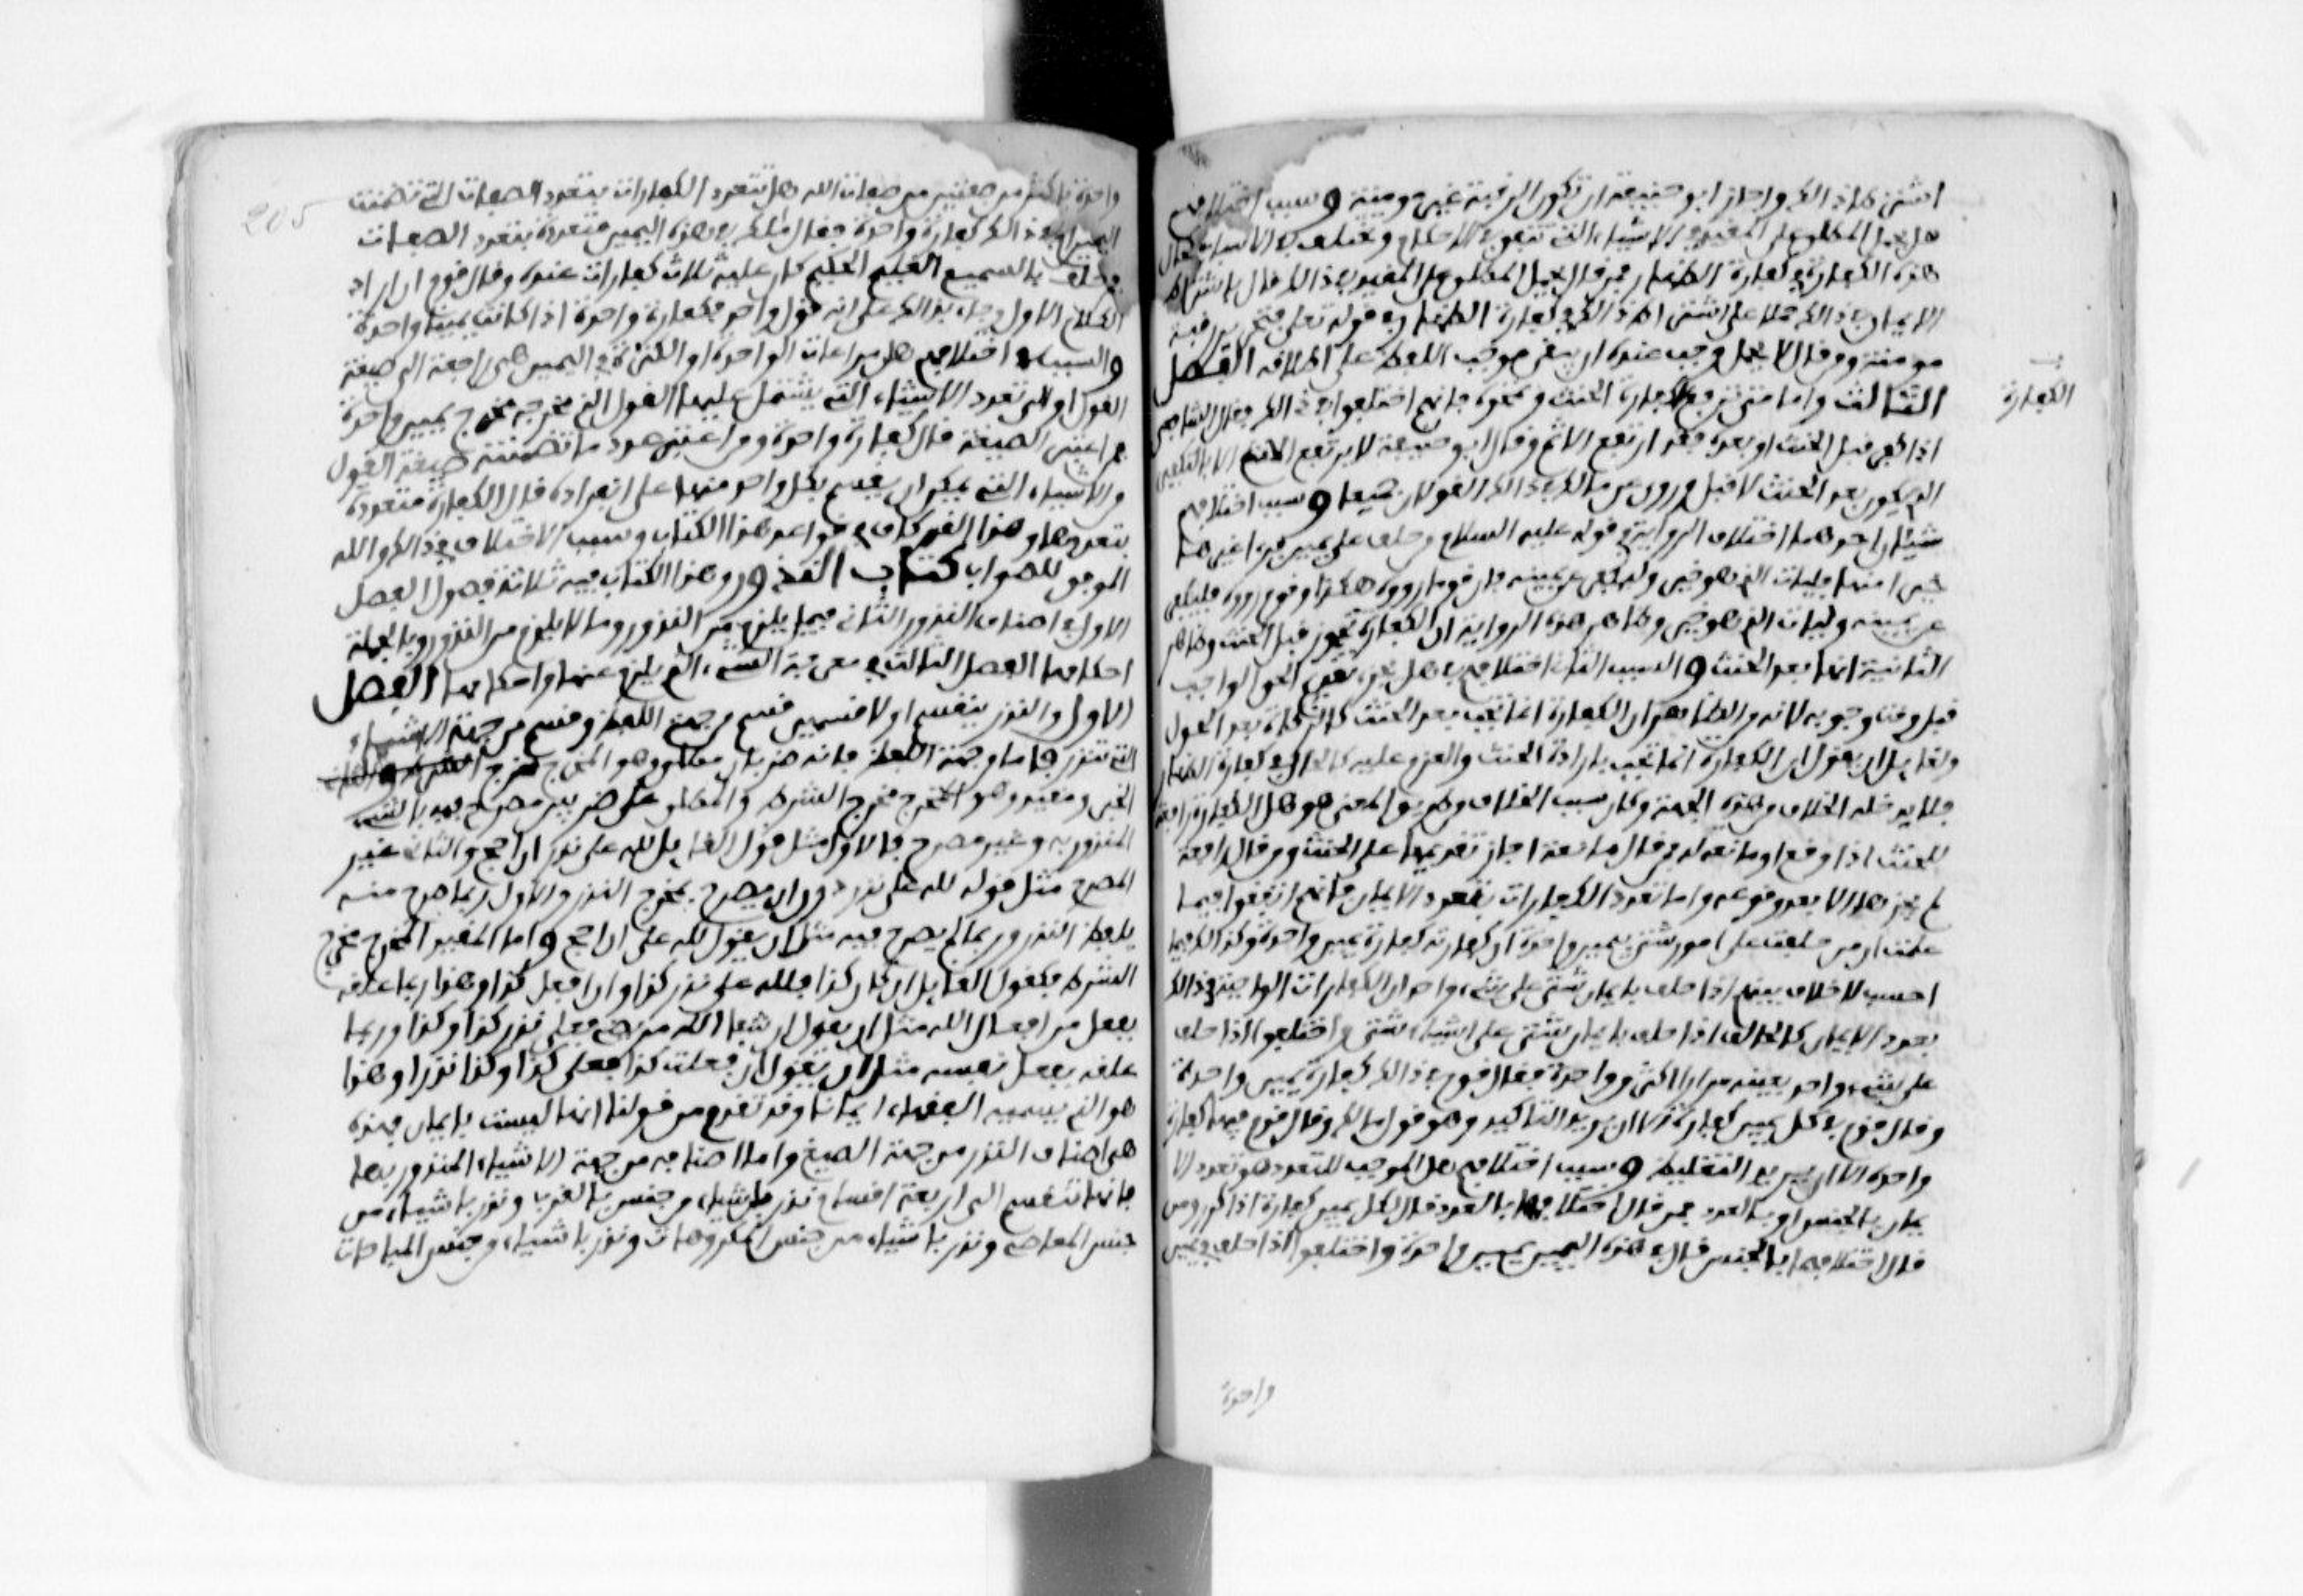 اشترط ذالك واجاز ابو حنيفة ان تكون الرقبة غير مومنة وسبب اختلافهم
هل يحمل المطلق على المقيد في الاشياء التي تتفق في الاحكام وتختلف في الاسباب كحال
هذه الكفارة في كفارة الظهار فمن قال يحمل المطلق على المقيد في ذالك قال باشتراط
الايمان في ذالك حملا على اشتراط ذالك في كفارة الظهار في قوله تعلى فتحرير رقبة
مومنة ومن قال لا يحمل وجب عنده ان يبقى موجب اللفظ على اطلافه الفصل
الثالث واما متى ترفع الكفارة الحنث وتمحوه فانهم اختلفوا في ذالك فقال الشافعي
اذا كفر قبل الحنث او بعده فقد ارتفع الاثم وقال ابو حنيفة لا يرتفع الحنث الا بالتكفير
الذي يكون بعد الحنث لا قبل وروي عن مالك في ذالك القولان جميعا وسبب اختلافهم
شيئان احدهما اختلاف الرواية في قوله عليه السلام من حلف على يمين فرءا غيرها
خيرا منها فليات الذي هو خير وليكفر عن يمينه فان قوما رووه هكذا وقوم رووه فليكفر
عن يمينه وليات الذي هو خير وظاهر هذه الرواية ان الكفارة تجوز قبل الحنث وظاهر
الثانية انها بعد الحنث والسبب الثاني اختلافهم في هل يجزي تقديم الحق الواجب
قبل وقت وجوبه لانه من الظاهر ان الكفارة انما تجب بعد الحنث كالزكاة بعد الحول
ولقايل ان يقول ان الكفارة انما تجب بارادة الحنث والعزم عليه كالحال في كفارة الظهار
فلا يدخله الخلاف من هذه الجهة وكان سبب الخلاف من طريق المعنى هو هل الكفارة رافعة
للحنث اذا وقع او مانعة له فمن قال مانعة اجاز تقديمها على الحنث ومن قال رافعة
لم يجزها الا بعد وقوعه واما تعدد الكفارات بتعدد الايمان فانهم اتفقوا فيما
علمت ان من حلف على امور شتى بيمين واحدة ان كفارته كفارة يمين واحدة وكذالك فيما
احسب لا خلاف بينهم اذا حلف بايمان شتى على شيء واحد ان الكفارات الواجبة في ذالك
بعدد الايمان كالحالف اذا حلف بايمان شتى على اشياء شتى واختلفوا اذا حلف
على شيء واحد بعينه مرارا كثيرة واحدة فقال قوم في ذالك كفارة يمين واحدة
وقال قوم في كل يمين كفارة الا ان يريد التاكيد وهو قول مالك وقال قوم فيها كفارة
واحدة الا ان يريد التغليظ وسبب اختلافهم هل الموجب للتعدد هو تعدد الا
يمان بالجنس او بالعدد فمن قال اختلافها بالعدد قال لكل يمين كفارة اذا كرر ومن
قال اختلافها بالجنس قال في هذه اليمين يمين واحدة واختلفوا اذا حلف في يمين
الكفارة
واحدة
205
واحدة باكثر من صفتين من صفات الله هل تتعدد الكفارات بتعدد الصفات التي تضمنت
اليمين ام في ذالك كفارة واحدة فقال مالك في هذه اليمين متعددة بتعدد الصفات
فمن حلف بالسميع العليم الحكيم كان عليه ثلاث كفارات عنده وقال قوم ان اراد
الكلام الاول وجاء بذالك على انه قول واحد فكفارة واحدة اذا كانت يمينا واحدة
والسبب في اختلافهم هل مراعات الواحدة او الكثرة في اليمين هي راجعة الى صيغة
القول او الى تعدد الاشياء التي يشتمل عليها القول الذي مخرجه مخرج يمين واحدة
فمن اعتبر الصيغة قال كفارة واحدة ومن اعتبر عدد ما تضمنته صيغة القول
من الاشياء التي يمكن ان يقسم بكل واحد منها على انفراده قال الكفارة متعددة
بتعددها وهذا القدر كاف في قواعد هذا الكتاب وسبب الاختلاف في ذالك والله
الموفق للصواب كتاب النذور وهذا الكتاب فيه ثلاثة فصول الفصل
الاول في اصناف النذور الثاني فيما يلزم من النذور وما لا يلزم من النذور وبالجملة
احكامها الفصل الثالث في معرفة الشيء الذي يلزم عنها واحكامها الفصل
الاول والنذر ينقسم اولا قسمين قسم من جهة اللفظ وقسم من جهة الاشياء
التي تنذر فاما من جهة اللفظ فانه ضربان مطلق وهو المخرج مخرج
الخبر ومقيد وهو المخرج مخرج الشرط والمطلق على ضربين مصرح فيه بالشيء
المنذور به وغير مصرح فالاول مثل قول القايل لله علي نذر ان احج والثاني غير
المصرح مثل قوله لله علي نذر دون ان يصرح بمخرج النذر والاول ربما صرح منه
بلفظ النذر وربما لم يصرح فيه مثل ان يقول لله علي ان احج واما المقيد المخرج مخرج
الشرط فكقول القايل ان كان كذا فلله علي نذر كذا وان افعل كذا وهذا ربما علقه
بفعل من افعال الله مثل ان يقول ان شفا الله مريضي فعلي نذر كذا وكذا وربما
علقه بفعل نفسه مثل ان يقول ان فعلت كذا فعلي كذا وكذا نذرا وهذا
هو الذي يسميه الفقهاء ايمانا وقد تقدم من قولنا انها ليست بايمان فهذه
هي اصناف النذر من جهة الصيغ واما اصنافه من جهة الاشياء المنذور بها
فانها تنقسم الى اربعة اقسام نذر باشياء من جنس بالقرب ونذر باشياء من
جنس المعاصي ونذر باشياء من جنس المكروهات ونذر باشياء من جنس المباحات